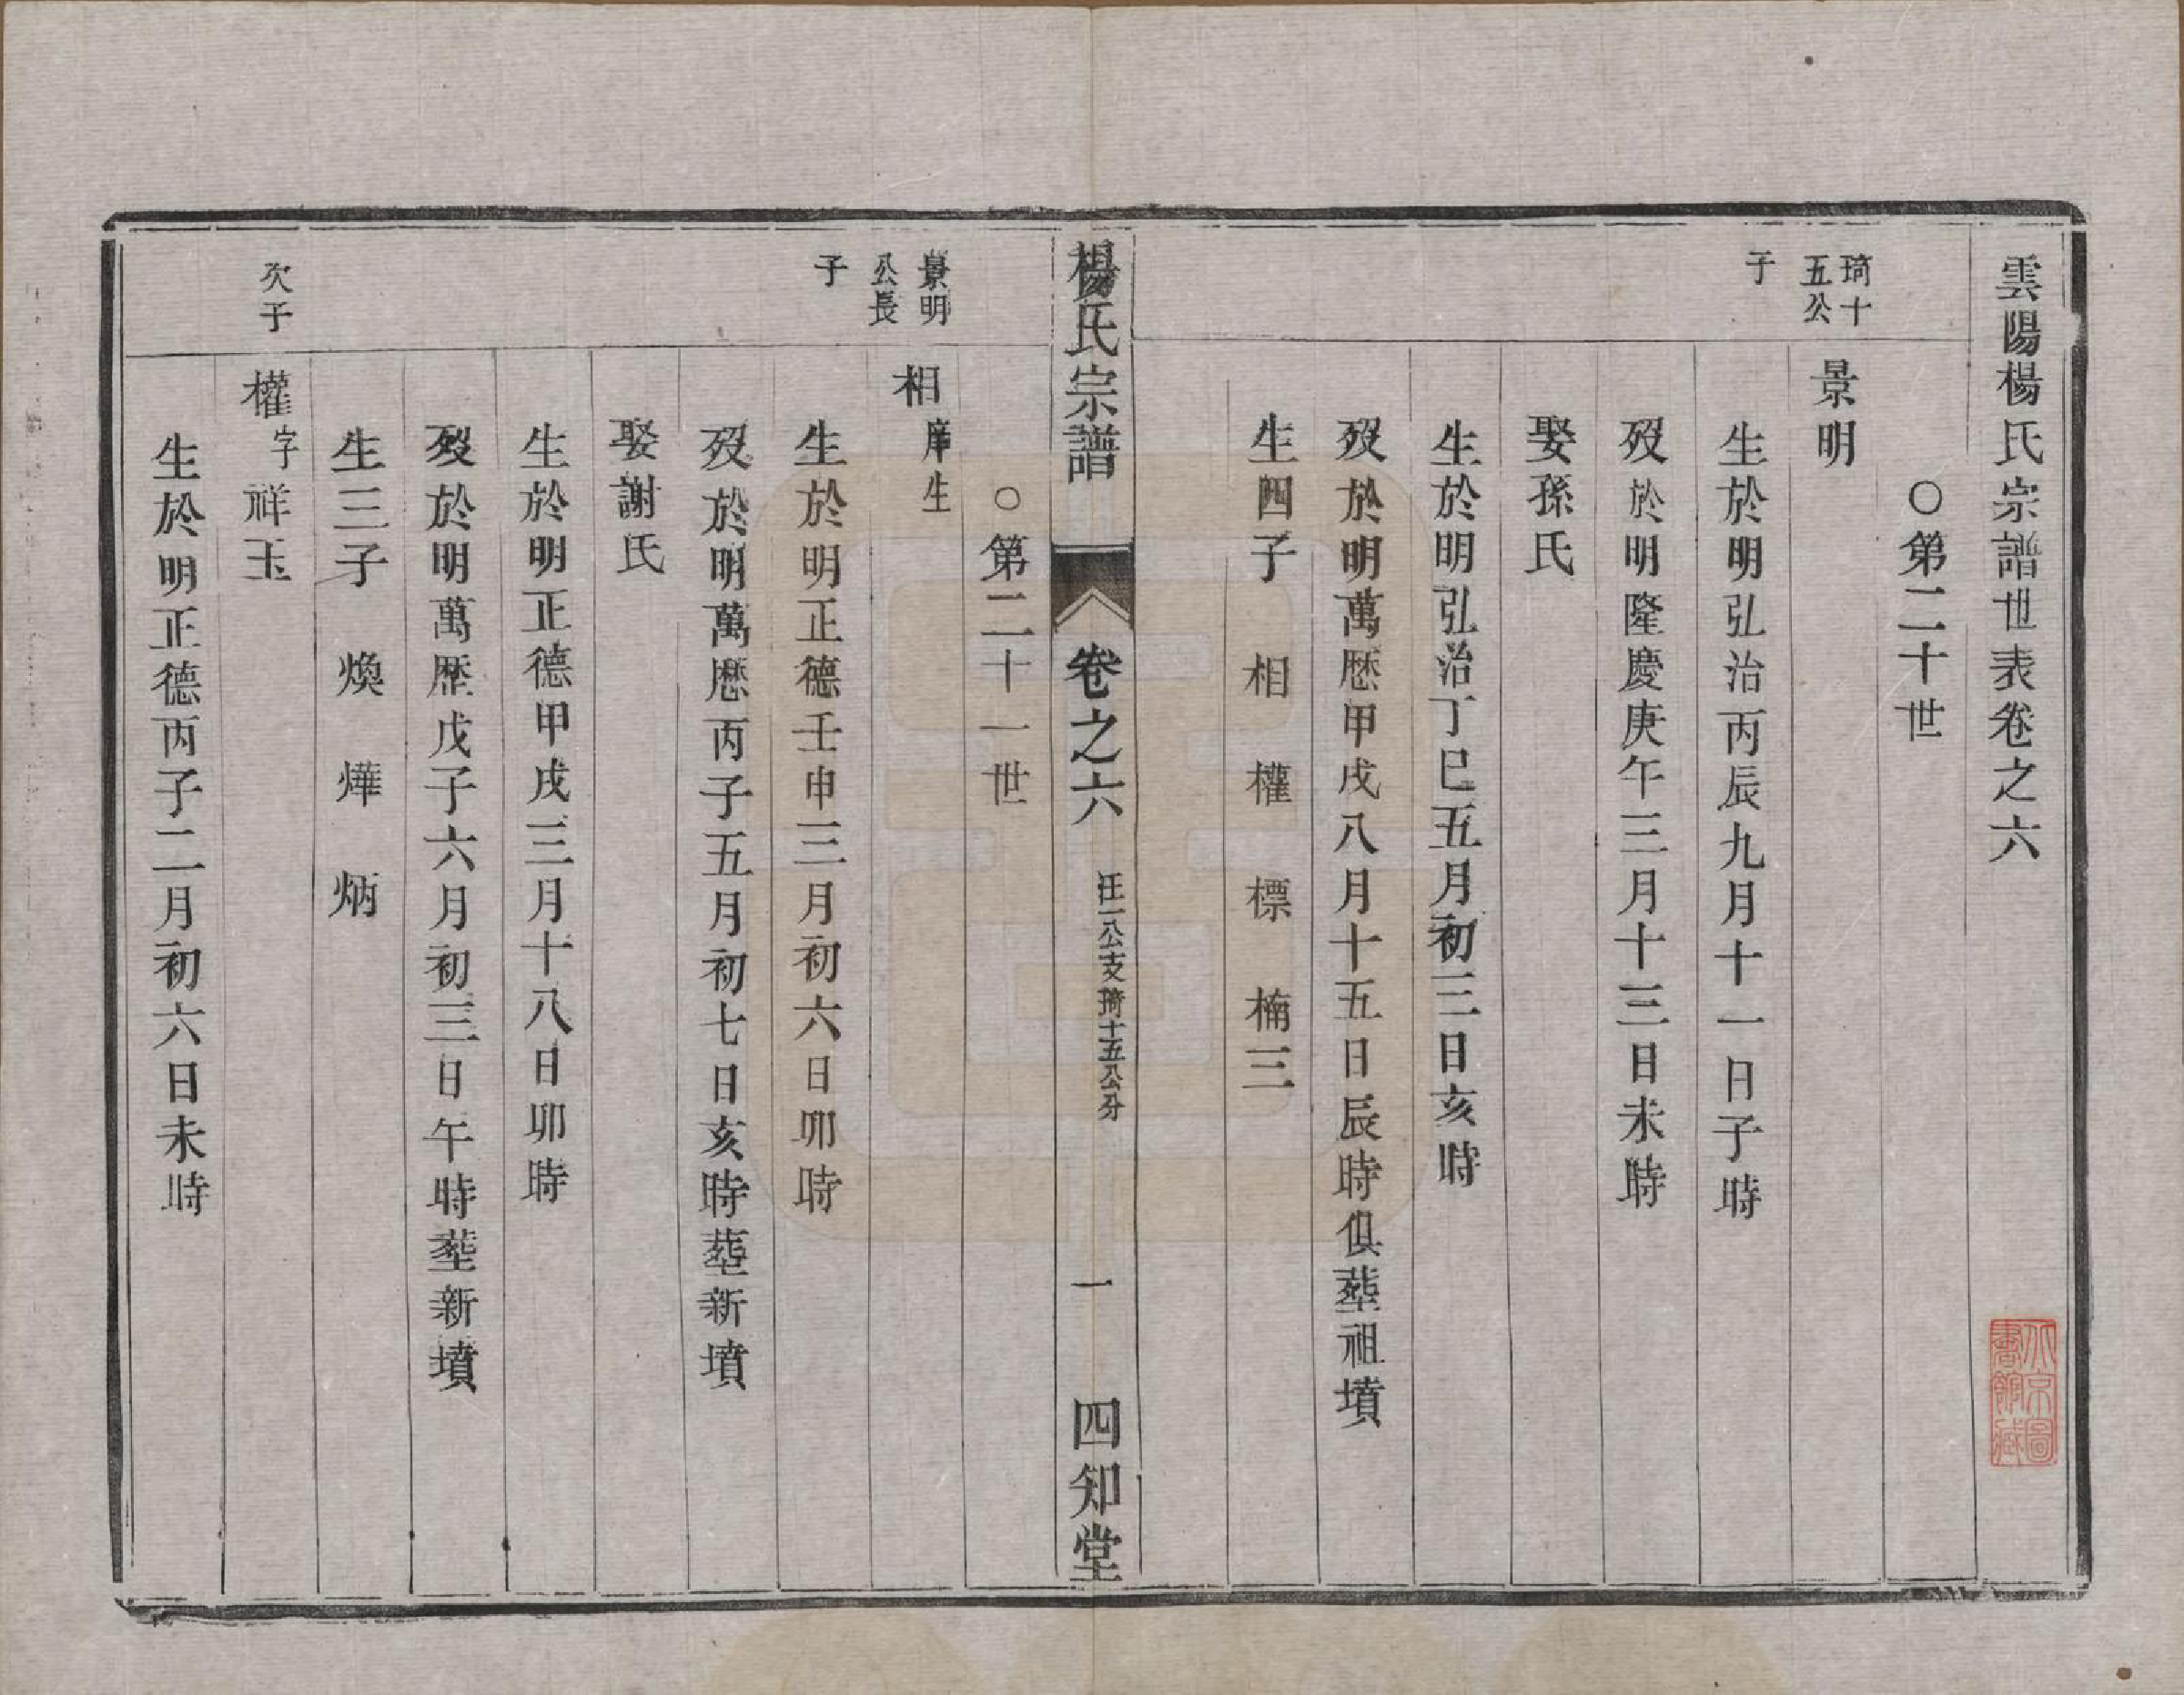 雲陽楊氏宗譜世表卷之六
○第二十世
琦十五公子
景明
生於明弘治丙辰九月十一日子時
歿於明隆慶庚午三月十三日未時
娶孫氏
生於明弘治丁巳五月初三日亥時
歿於明萬厯甲戌八月十五日辰時俱塟祖墳
生四子 相 權 標 楠三
楊氏宗譜 卷之六 汪一公支琦十五公分 一 四知堂
○第二十一世
景明公長子
相庠生
生於明正德壬申三月初六日卯時
歿於明萬厯丙子五月初七日亥時塟新墳
娶謝氏
生於明正德甲戌三月十八日卯時
歿於明萬歷戊子六月初三日午時塟新墳
生三子 煥 燁 炳
次子
權字祥玉
生於明正德丙子二月初六日未時
北京圖書館藏